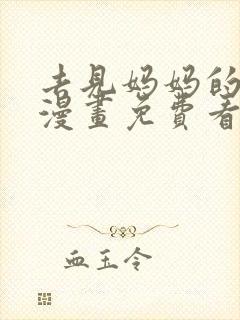 去見妈妈的
漫畫免費看
血玉令